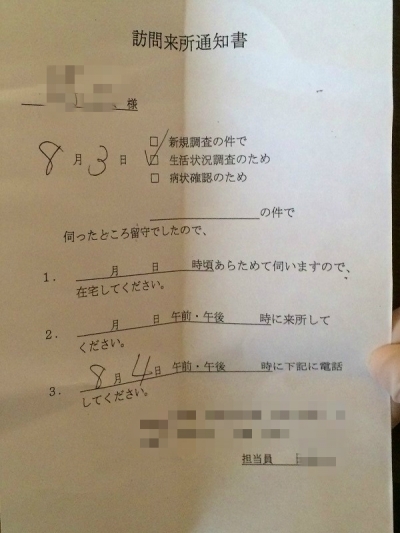 訪問来所通知書
様
8月3日
□ 新規調査の件で
☑ 生活状況調査のため
□ 病状確認のため
の件で
伺ったところ留守でしたので、
1. 月 日 時頃あらためて伺いますので、
在宅してください。
2. 月 日 午前・午後 時に来所して
ください。
3. 8月4日 午前・午後 時に下記に電話
してください。
担当員